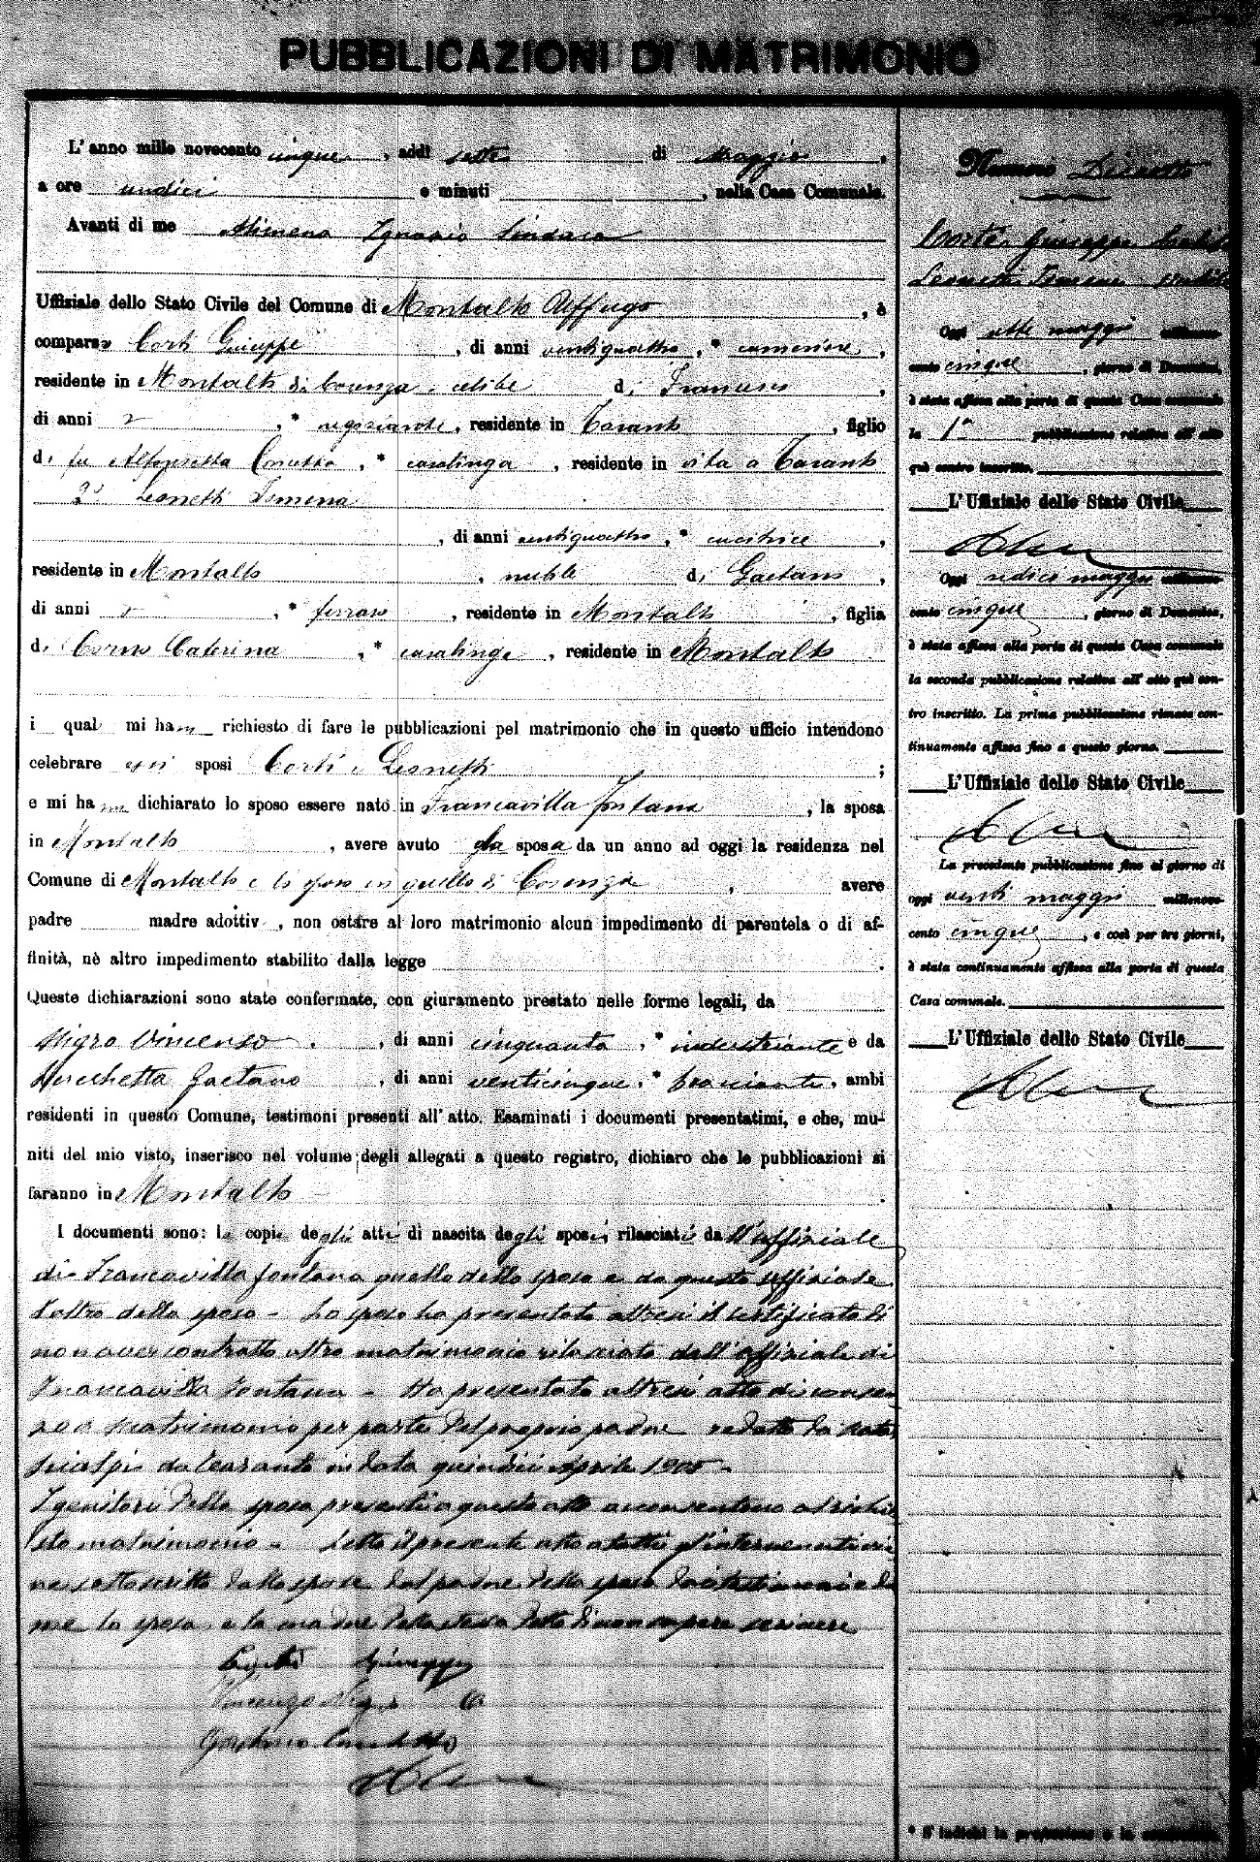 PUBBLICAZIONI DI MATRIMONIO
L'anno mille novecento cinque, addì sette di Maggio,
a ore undici e minuti , nella Casa Comunale.
Avanti di me Alimena Ignazio Sindaco
Uffiziale dello Stato Civile del Comune di Montalto Uffugo, è
compars Corti Giuseppe, di anni ventiquattro, * cameriere,
residente in Montalto di Cosenza, celibe di Francesco
di anni , * negoziante, residente in Taranto, figlio
di fu Alfonsetta , * casalinga, residente in vita a Taranto
2° Leonetti Ismena
, di anni ventiquattro, * cucitrice,
residente in Montalto, nubile di Gaetano,
di anni , * ferraro, residente in Montalto, figlia
di Corno Caterina, * casalinga, residente in Montalto
i qual mi hanno richiesto di fare le pubblicazioni pel matrimonio che in questo ufficio intendono
celebrare essi sposi Corti e Leonetti;
e mi hanno dichiarato lo sposo essere nato in Francavilla Fontana, la sposa
in Montalto, avere avuto la sposa da un anno ad oggi la residenza nel
Comune di Montalto e lo sposo in quello di Cosenza, avere
padre madre adottiv , non ostare al loro matrimonio alcun impedimento di parentela o di af-
finità, nè altro impedimento stabilito dalla legge .
Queste dichiarazioni sono state confermate, con giuramento prestato nelle forme legali, da
Nigro Vincenzo, di anni cinquanta, * industriante e da
Gaetano, di anni venticinque, * bracciante, ambi
residenti in questo Comune, testimoni presenti all'atto. Esaminati i documenti presentatimi, e che, mu-
niti del mio visto, inserisco nel volume degli allegati a questo registro, dichiaro che le pubblicazioni si
faranno in Montalto.
I documenti sono: le copie degli atti di nascita degli sposi, rilasciati da l'uffiziale
di Francavilla Fontana quello dello sposo e da questo uffiziale
l'altro della sposa - Lo sposo ha presentato altresì il certificato di
non aver contratto altro matrimonio rilasciato dall'uffiziale di
Francavilla Fontana - Ha presentato altresì atto di consen
matrimonio per parte del proprio padre redatto da
da Taranto in data quindici Aprile 1905 -
I genitori della sposa presenti a questo atto acconsentono al richie
sto matrimonio - Letto il presente atto a tutti gl'intervenuti vie
ne sottoscritto dallo sposo dal padre della sposa dai testimoni e da
me la sposa e la madre della stessa detto di non sapere scrivere
Corti Giuseppe
Vincenzo Nigro
Gaetano
Numero Diciotto
Corti Giuseppe Celibe
Leonetti Ismena nubile
Oggi sette maggio millenove-
cento cinque, giorno di Domenica,
è stata affissa alla porta di questa Casa comunale
la 1ª pubblicazione relativa all'atto
quì contro inscritto.
L'Uffiziale dello Stato Civile
Oggi maggio millenove-
cento cinque, giorno di Domenica,
è stata affissa alla porta di questa Casa comunale
la seconda pubblicazione relativa all'atto quì con-
tro inscritto. La prima pubblicazione rimase con-
tinuamente affissa fino a questo giorno.
L'Uffiziale dello Stato Civile
La precedente pubblicazione fino al giorno di
oggi venti maggio millenove-
cento cinque, e così per tre giorni,
è stata continuamente affissa alla porta di questa
Casa comunale.
L'Uffiziale dello Stato Civile
* S'indichi la professione o la condizione.